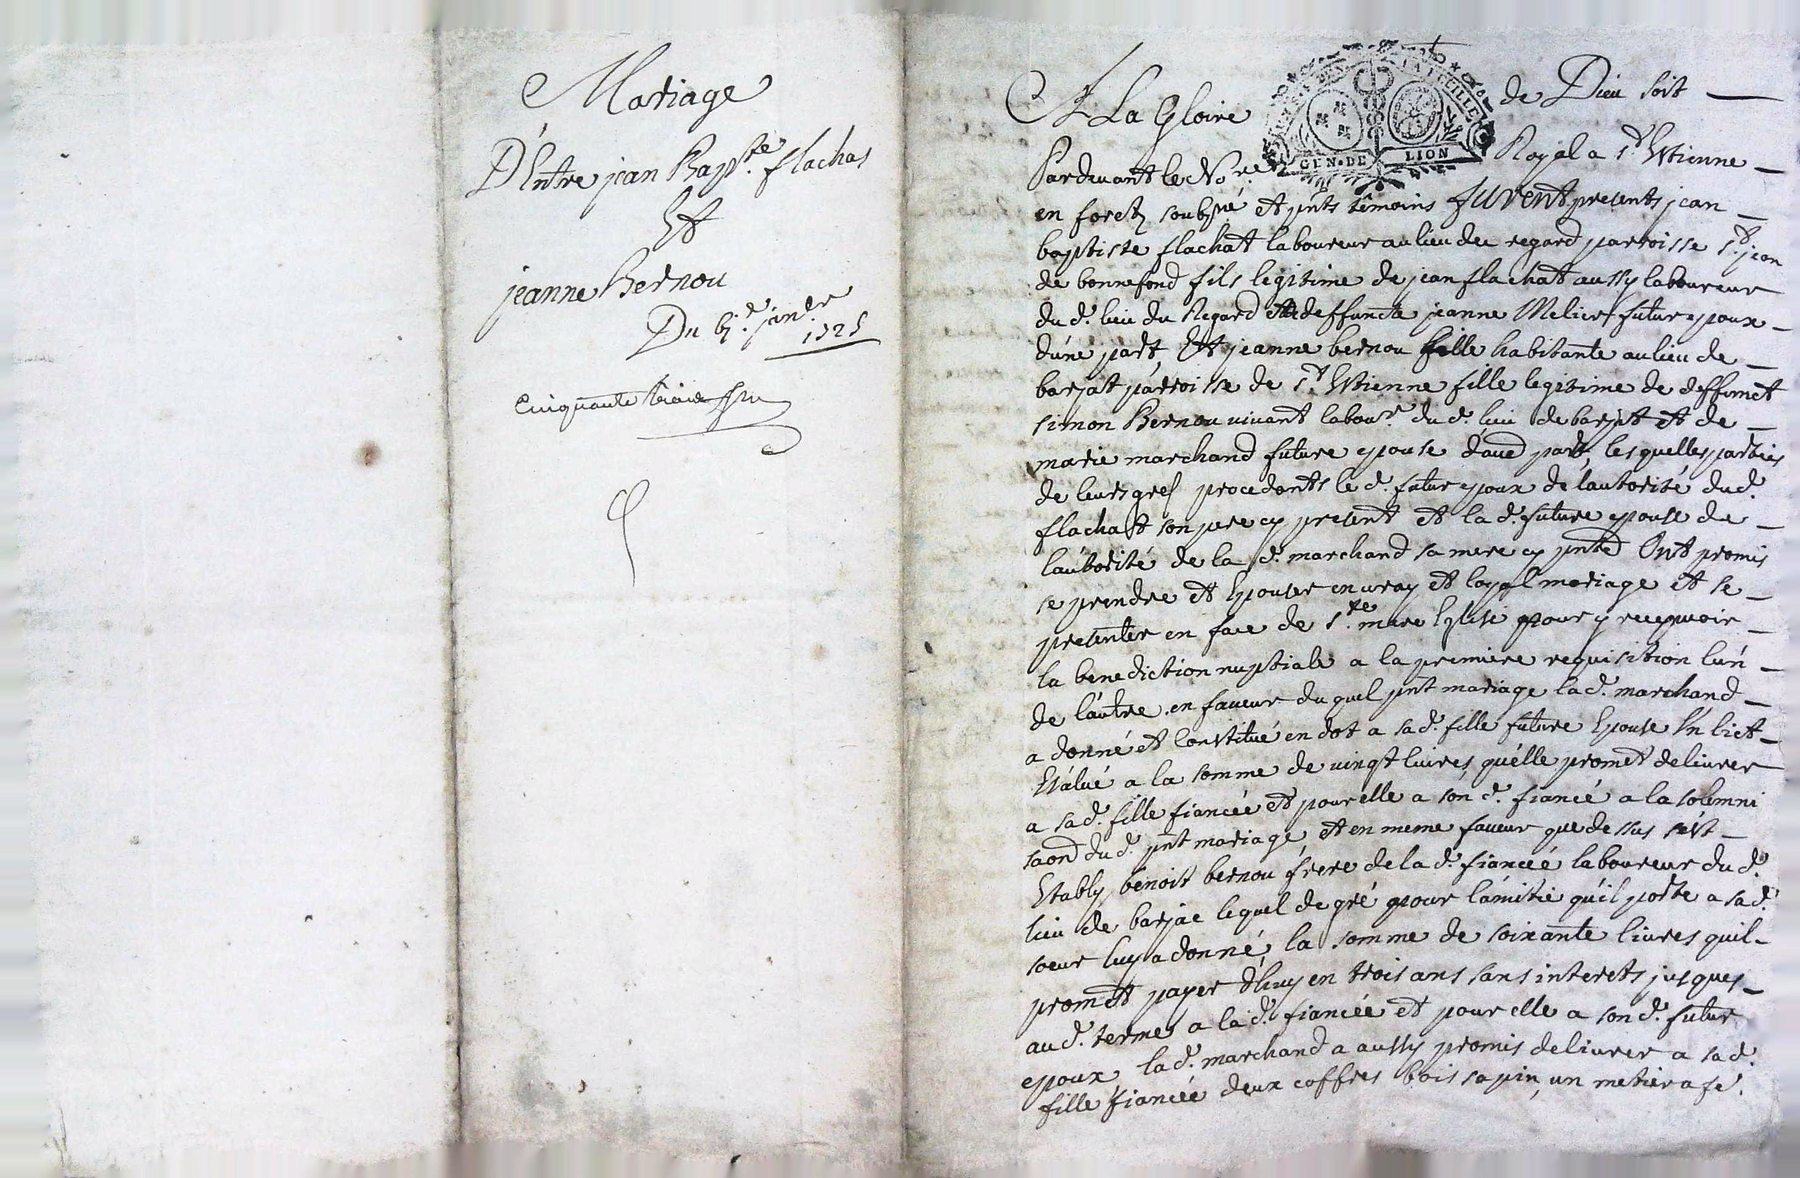 Mariage
D'Entre jean Bap.te flachat
Et
jeanne Bernou
Du 6.e janv.er
1725
Cinquante
A La Gloire de Dieu soit
GEN. DE LION
Pardevant le No.re Royal a S.t Etienne
en foretz soubs.né et p'nts témoins furent presents jean
baptiste flachat laboureur au lieu du regard parroisse S.t jean
de bonnefond fils legitime de jean flachat aussy laboureur
du d. lieu du Regard et deffuncte jeanne Melier futur epoux
d'une part Et jeanne bernou fille habitante au lieu de
barjat parroisse de S.t Etienne fille legitime de deffunct
simon Bernou vivant labour.r du d. lieu de barjat et de
marie marchand future epouse d'aue part, lesquelles parties
de leurs gres procedants le d. futur epoux de l'autorité du d.
flachat son pere cy present et la d. future epouse de
l'autorité de la d. marchand sa mere cy pnte Ont promis
se prendre et Epouser en vray et loyal mariage et se
presenter en face de S.te mere Eglise pour y recepvoir
la benediction nuptiale a la premiere requisition l'un
de l'autre, en faveur du quel p'nt mariage la d. marchand
a donné et Constitué en dot a sa d. fille future Epouse Un lict
Evalué a la somme de vingt livres, qu'elle promet delivrer
a sa d. fille fiancée et pour elle a son d. fiancé a la solemni
saon du d. p'nt mariage, et en meme faveur que dessus s'est
Etably benoit bernou frere de la d. fiancée laboureur du d.
lieu de barjac lequel de gré pour l'amitié qu'il porte a sa d.
soeur luy a donné la somme de soixante livres quil
promet payer d'huy en trois ans sans interets jusques
au d. terme a la d. fiancée et pour elle a son d. futur
epoux, la d. marchand a aussy promis delivrer a sa d.
fille fiancée deux coffres bois sapin, un metier a fe.